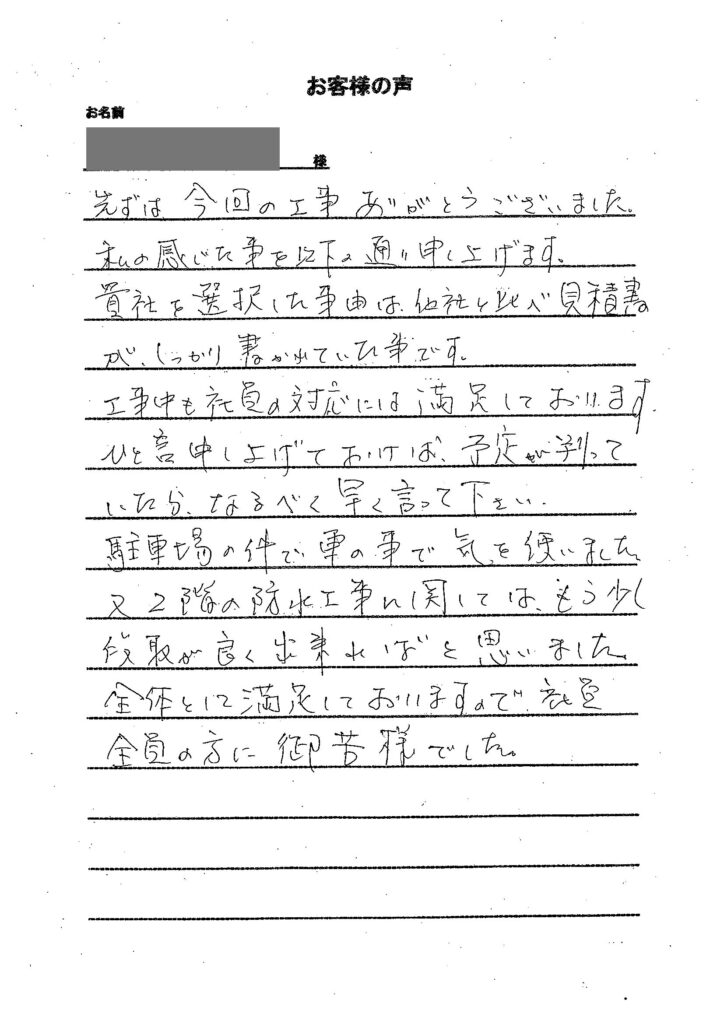 お客様の声
お名前
様
先ずは今回の工事ありがとうございました。
私の感じた事を以下の通り申し上げます。
貴社を選択した事由は、他社と比べ見積書の
が、しっかり書かれていた事です。
工事中も社員の対応には満足しております。
ひと言申し上げておけば、予定が判って
いたら、なるべく早く言って下さい。
駐車場の件で車の事で気を使いました。
又2階の防水工事に関しては、もう少し
段取が良く出来ればと思いました。
全体として満足しておりますので、社員
全員の方に御苦様でした。